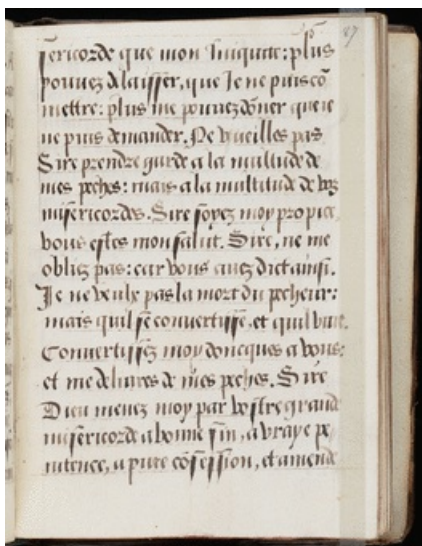 87
sericorde que mon Iniquite: plus
pouuez delaisser, que Ie ne puis cõ
mettre: plus me pouuez dõner que ie
ne puis demander. Ne vueilles pas
Sire prendre garde a la multitude de
mes peches: mais a la multitude de voz
misericordes. Sire soyez moy propice,
vous estes mon salut. Sire, ne me
obliez pas: car vous auez dict ainsi.
Ie ne veulx pas la mort du pecheur:
mais quil se conuertisse, et quil viue.
Conuertissez moy doncques a vous:
et me deliures de mes peches. Sire
Dieu menez moy par vostre grand
misericorde a bonne fin, a vraye pe
nitence, a pure cõfession, et amende